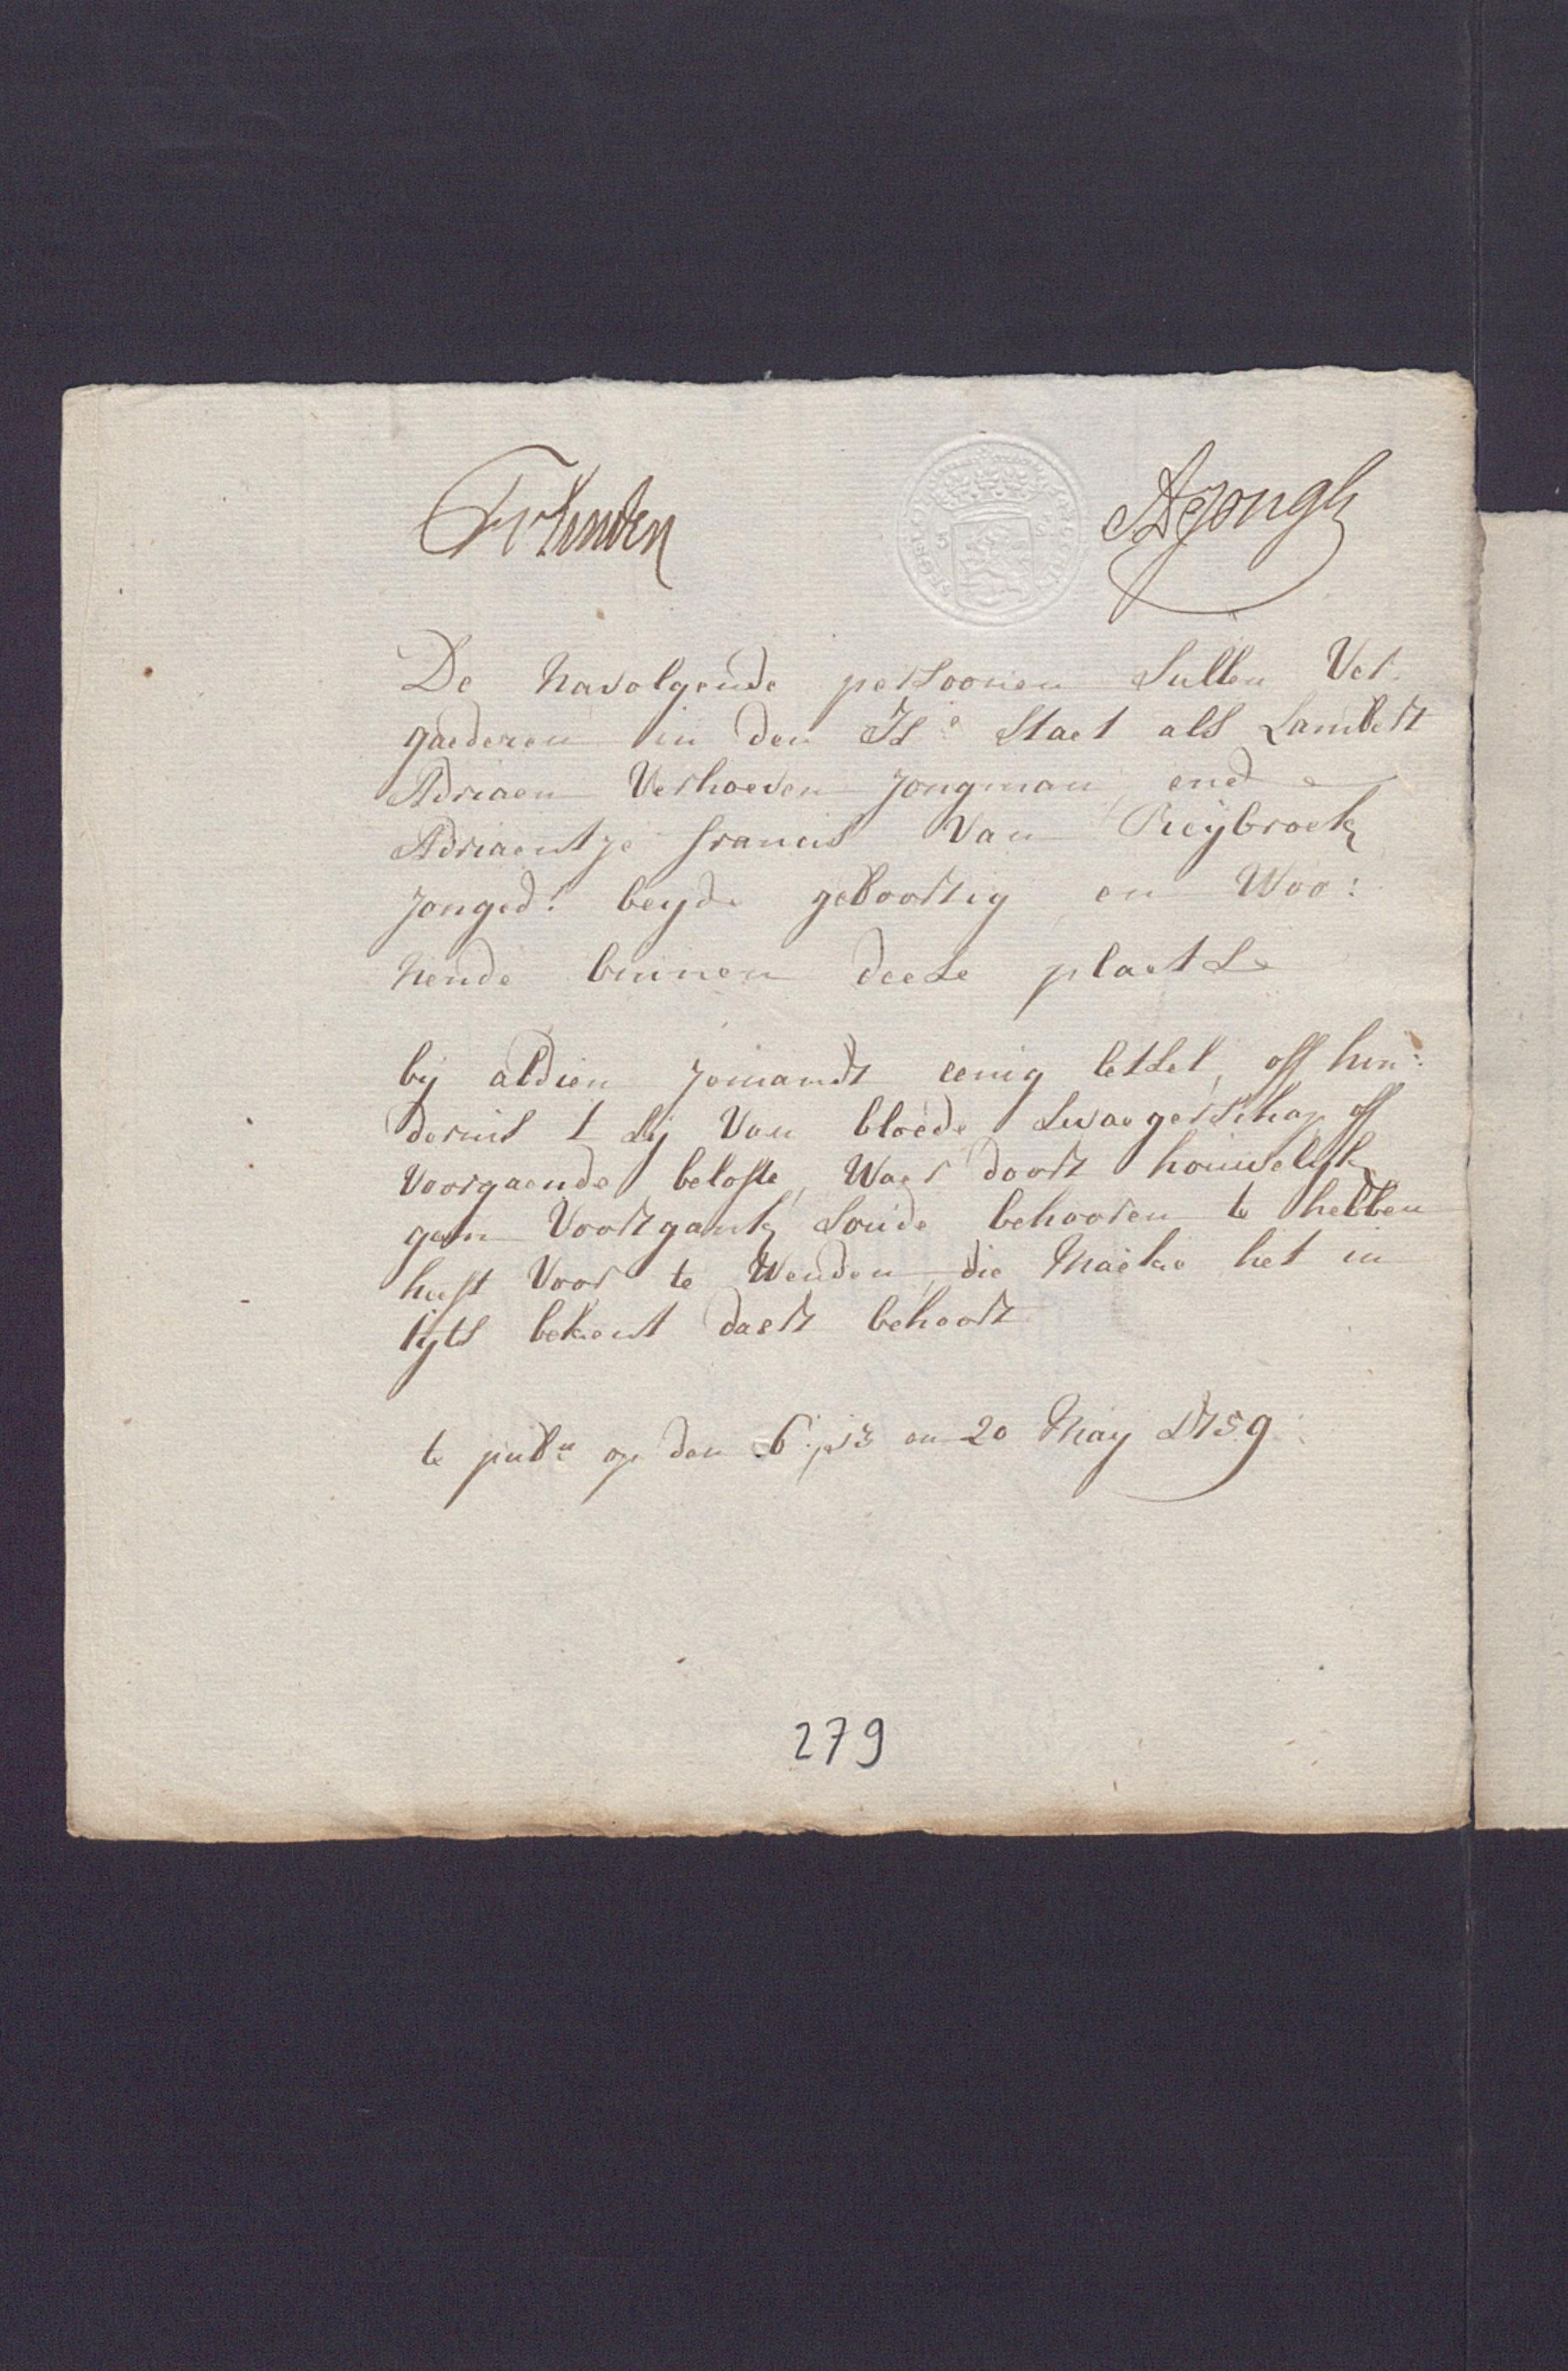 De navolgende persoonen sullen Ver-
gaederen in den H:e staet als Lambert
Adriaen Verhoeven jongman, ende
Adriaentje francis Van Reijbroek
jonged: beyde geboortig en Woo:
nende binnen deese plaetse
bij aldien jemandt eenig letsel, off hin:
dernis t sij Van bloede swaegerschap off
voorgaende belofte, Waer doort houwelijk
geen Voortgank soude behooren te hebben
heeft Voor te Wenden, die Maeke het in
tijts bekent daert behoort
te pub:n op den 6. 13 en 20 Maij 1759
279